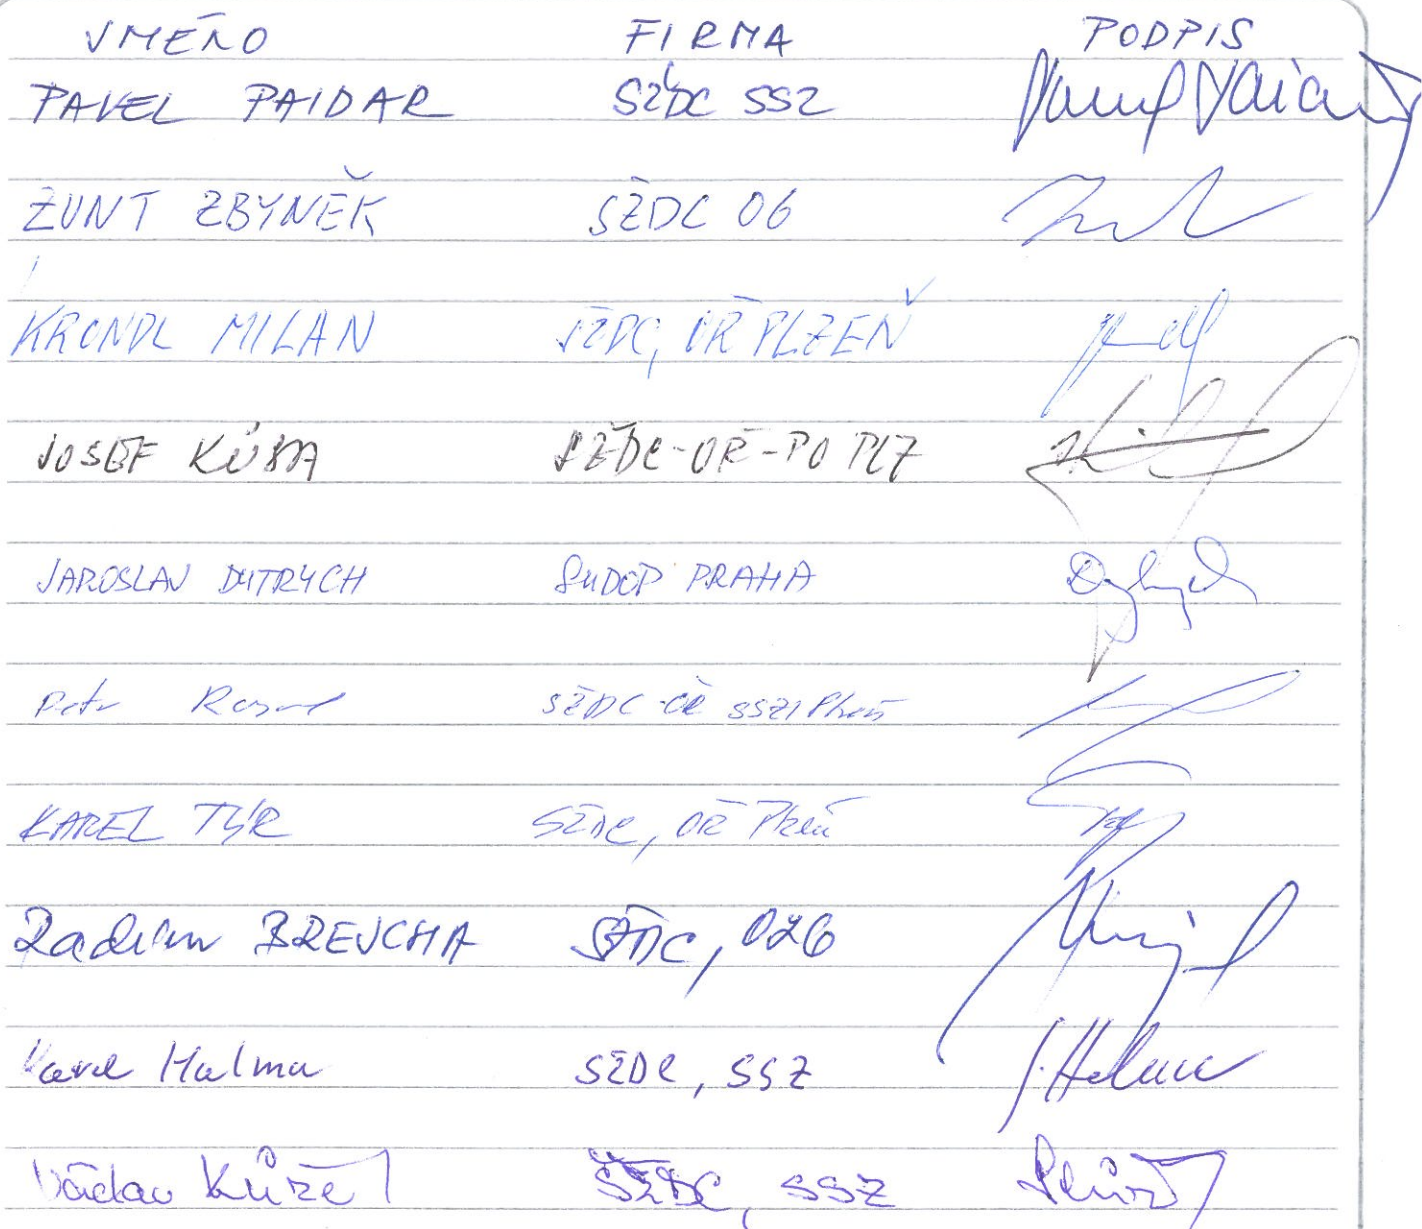 JMÉNO FIRMA PODPIS
PAVEL PAIDAR SŽDC SSZ
ŽUNT ZBYNĚK SŽDC 06
KRONDL MILAN SŽDC, OŘ PLZEŇ
JOSEF KŮBA SŽDC-OŘ-PO PLZ
JAROSLAV DYTRYCH SUDOP PRAHA
Petr SŽDC-OŘ Plzeň
KAREL TÝR SŽDC, OŘ Plzeň
Radim BREJCHA SŽDC, 026
Karel Halma SŽDC, SSZ
Václav Kůžel SŽDC, SSZ